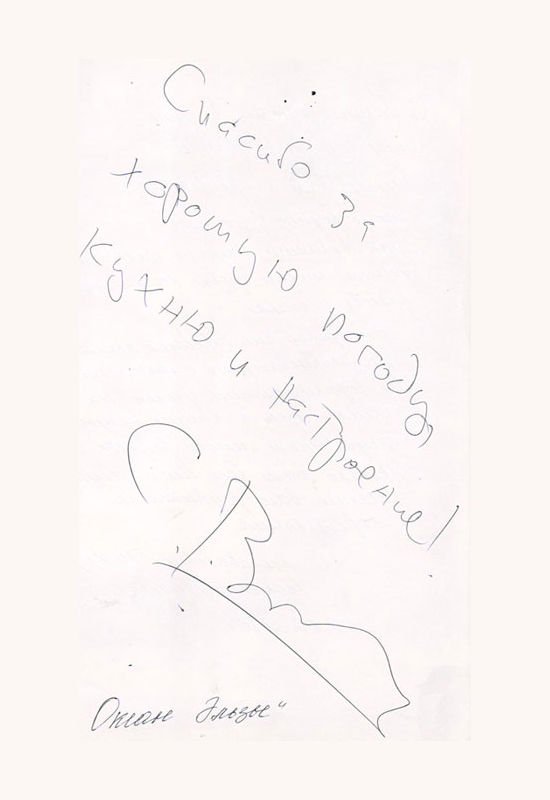 Спасибо за
хорошую погоду
кухню и настроение!
Океан Эльзы"